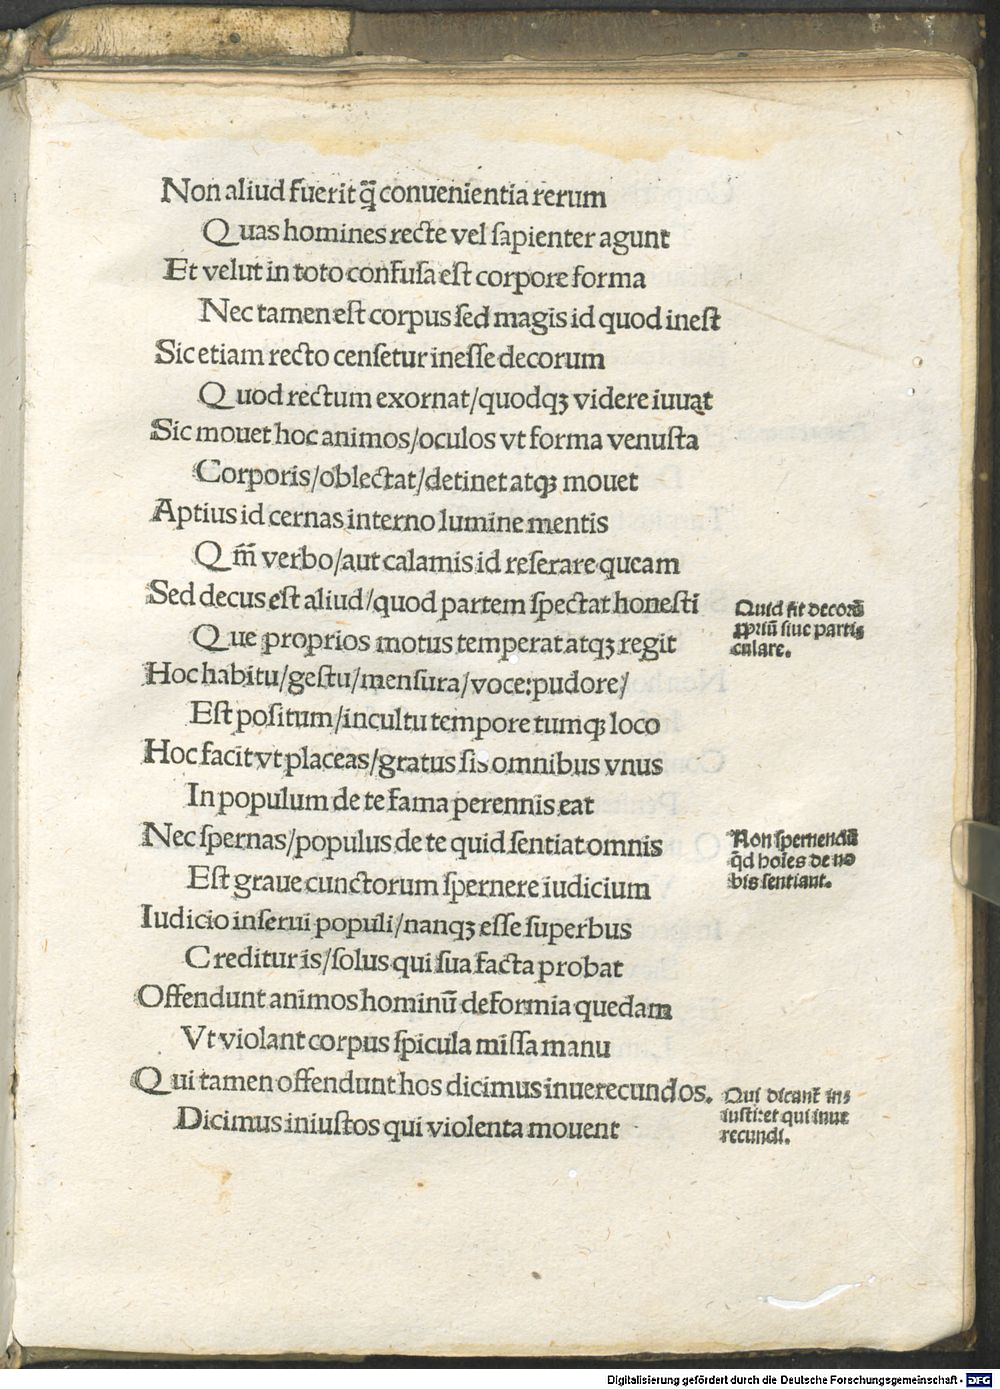 Non aliud fuerit q̄̃ conuenientia rerum
Quas homines recte vel ſapienter agunt
Et velut in toto confuſa eſt corpore forma
Nec tamen eſt corpus ſed magis id quod ineſt
Sic etiam recto cenſetur ineſſe decorum
Quod rectum exornat/quodqꝫ videre iuuat
Sic mouet hoc animos/oculos vt forma venuſta
Corporis/oblectat/detinet atqꝫ mouet
Aptius id cernas interno lumine mentis
Qm̄̃ verbo/aut calamis id reſerare queam
Sed decus eſt aliud/quod partem ſpectat honeſti
Que proprios motus temperat atqꝫ regit
Quid ſit decorū
ꝓpriū ſiue parti⸗
culare.
Hoc habitu/geſtu/menſura/voce:pudore/
Eſt poſitum/incultu tempore tumqꝫ loco
Hoc facit vt placeas/gratus ſis omnibus vnus
In populum de te fama perennis eat
Nec ſpernas/populus de te quid ſentiat omnis
Eſt graue cunctorum ſpernere iudicium
Non ſpernendū
qd̄ hoīes de no
bis ſentiant.
Iudicio inſerui populi/nanqꝫ eſſe ſuperbus
Creditur is/ſolus qui ſua facta probat
Offendunt animos hominū deformia quedam
Vt violant corpus ſpicula miſſa manu
Qui tamen offendunt hos dicimus inuerecundos.
Dicimus iniuſtos qui violenta mouent
Qui dicant̄ in⸗
iuſti:et qui inue
recundi.
Digitalisierung gefördert durch die Deutsche Forschungsgemeinschaft - DFG